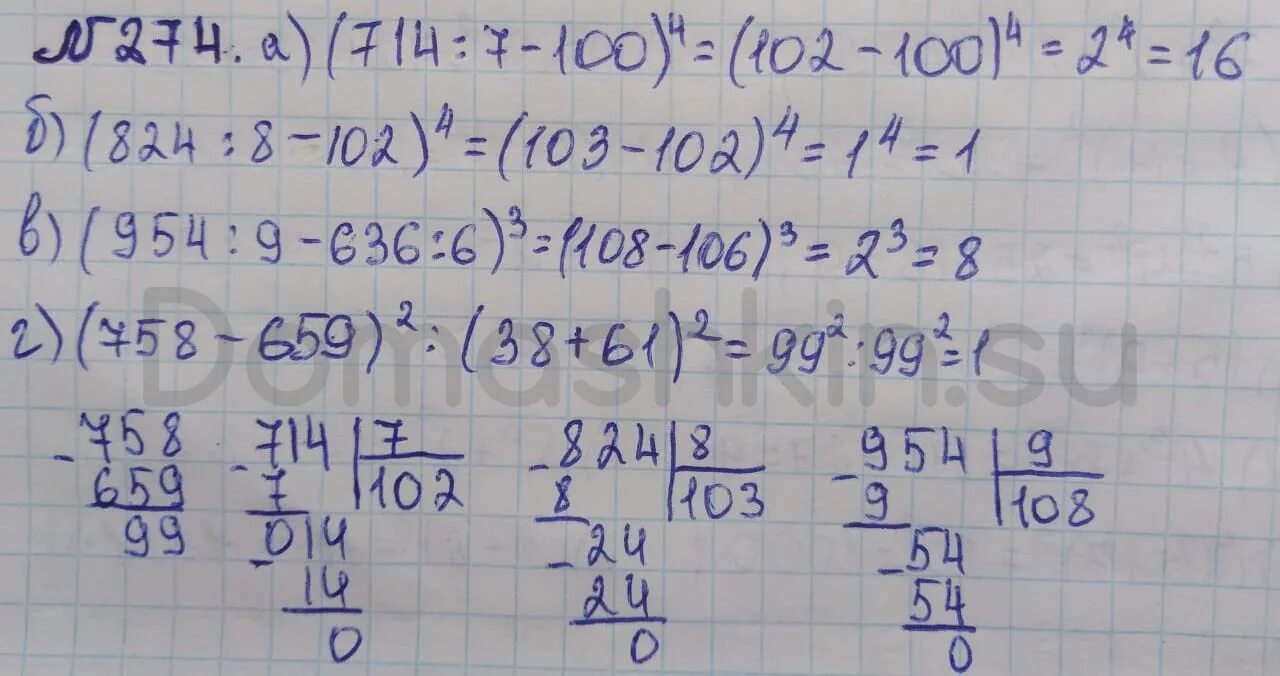 №274. а) (714 : 7 - 100)⁴ = (102 - 100)⁴ = 2⁴ = 16
б) (824 : 8 - 102)⁴ = (103 - 102)⁴ = 1⁴ = 1
в) (954 : 9 - 636 : 6)³ = (108 - 106)³ = 2³ = 8
г) (758 - 659)² : (38 + 61)² = 99² : 99² = 1
Domashkin.su
- 758
659
99
- 714 | 7
7 | 102
- 014
14
0
- 824 | 8
8 | 103
- 24
24
0
- 954 | 9
9 | 108
- 54
54
0